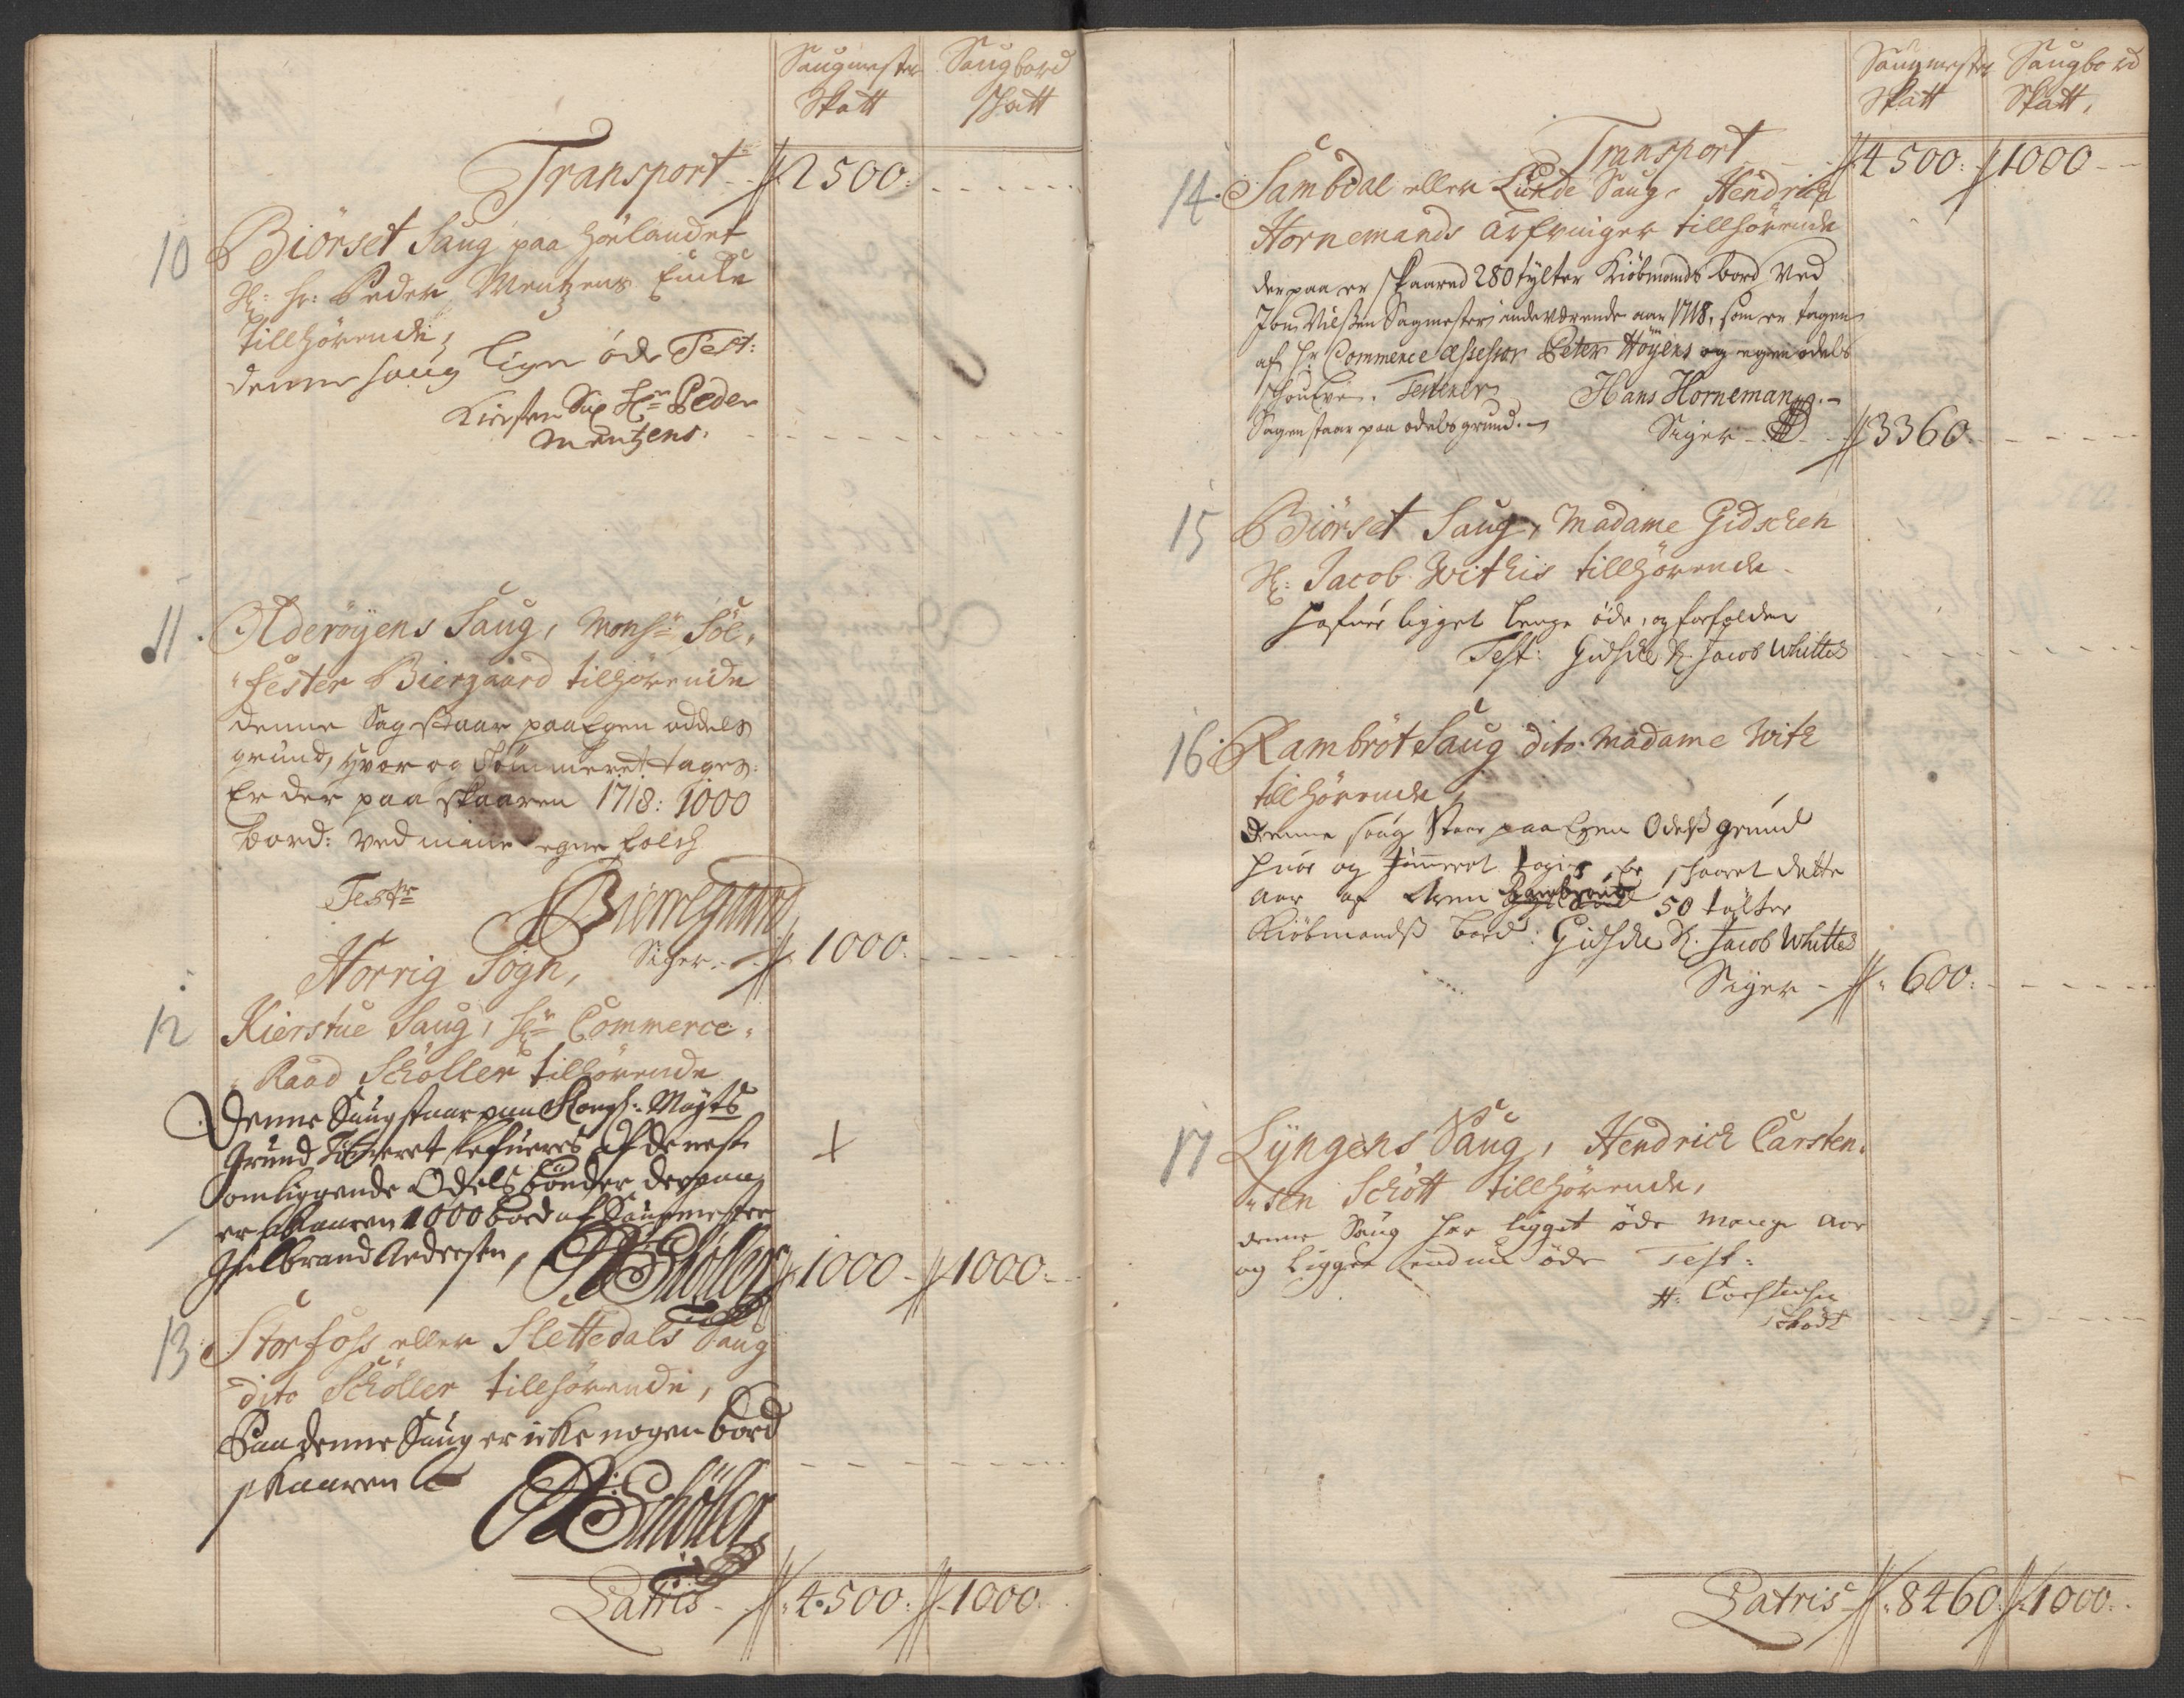 Saugmester Saugbord
Skatt Skatt
Transport - 2500:
10 Biörset Saug paa
Sl: Hr: Peder Mentzens Encke
tillhörende,
denne saug liger öde Test:
Kirsten Sal Hr Peder
Mentzens.
11. Olderöyens Saug, Monsr: Söl„
„fester Biergaard tilhörende
denne Sag staar paa Egen oddels
grund, hvor og Tömmeret tages.
Er der paa skaaren 1718: 1000
bord: ved mine egne folch
Testr
Bierregaard
Siger - 1000.
Horrig Sogn,
12 Kierstue Saug, Hr Commerce„
„Raad Schöller tilhörende
Denne Saug staar paa Kongl: Mayts
Grund Tömeret lefueres af de nest
omliggende Odels bönder der paa
er skaaren 1000 bord af Saugmester
Gulbrand Andersen, Schöller 1000 - 1000:
13 Storfoss eller Slettedals Saug
dito Schöller tillhörende,
Paa denne Saug er icke nogen bord
skaaren
Schöller
Latris - 4500: 1000.
Saugmester Saugbord
Skatt Skatt,
Transport - 4500: 1000 -
14. Sambdal eller Lunde Saug, Hendrich
Hornemands Arfvinger tillhörende
der paa er skaared 280 tylter Kiöbmands bord ved
Jon Nilssen Sagmester indeværende aar 1718, som er tagen
af Hr Commerce Assessor Peter Höyers og egen odels
schoufve. Testerer Hans Horneman
Sagen staar paa odels grund. Siger - 3360.
15 Biörset Saug, Madame Gidschen
Sl: Jacob Withis tillhörende
Hafuer ligget lenge öde, og forfalden
Test: Gidsche Sl. Jacob Whittes
16. Rambröt Saug dito Madame With
tillhörende,
Denne saug staar paa Egen Odelss grund
huor og tömmeret tagis, Er schaaret dette
aar af 50 tölter
Kiöbmandss bord: Gidsche Sl. Jacob Whittes
Siger - 600.
17 Lyngens Saug, Hendrich Carsten„
„sen Schött tillhörende,
denne Saug har ligget öde mange aar
og ligger endnu öde Test:
H: Carstensen
Schödt
Latris 8460. 1000.